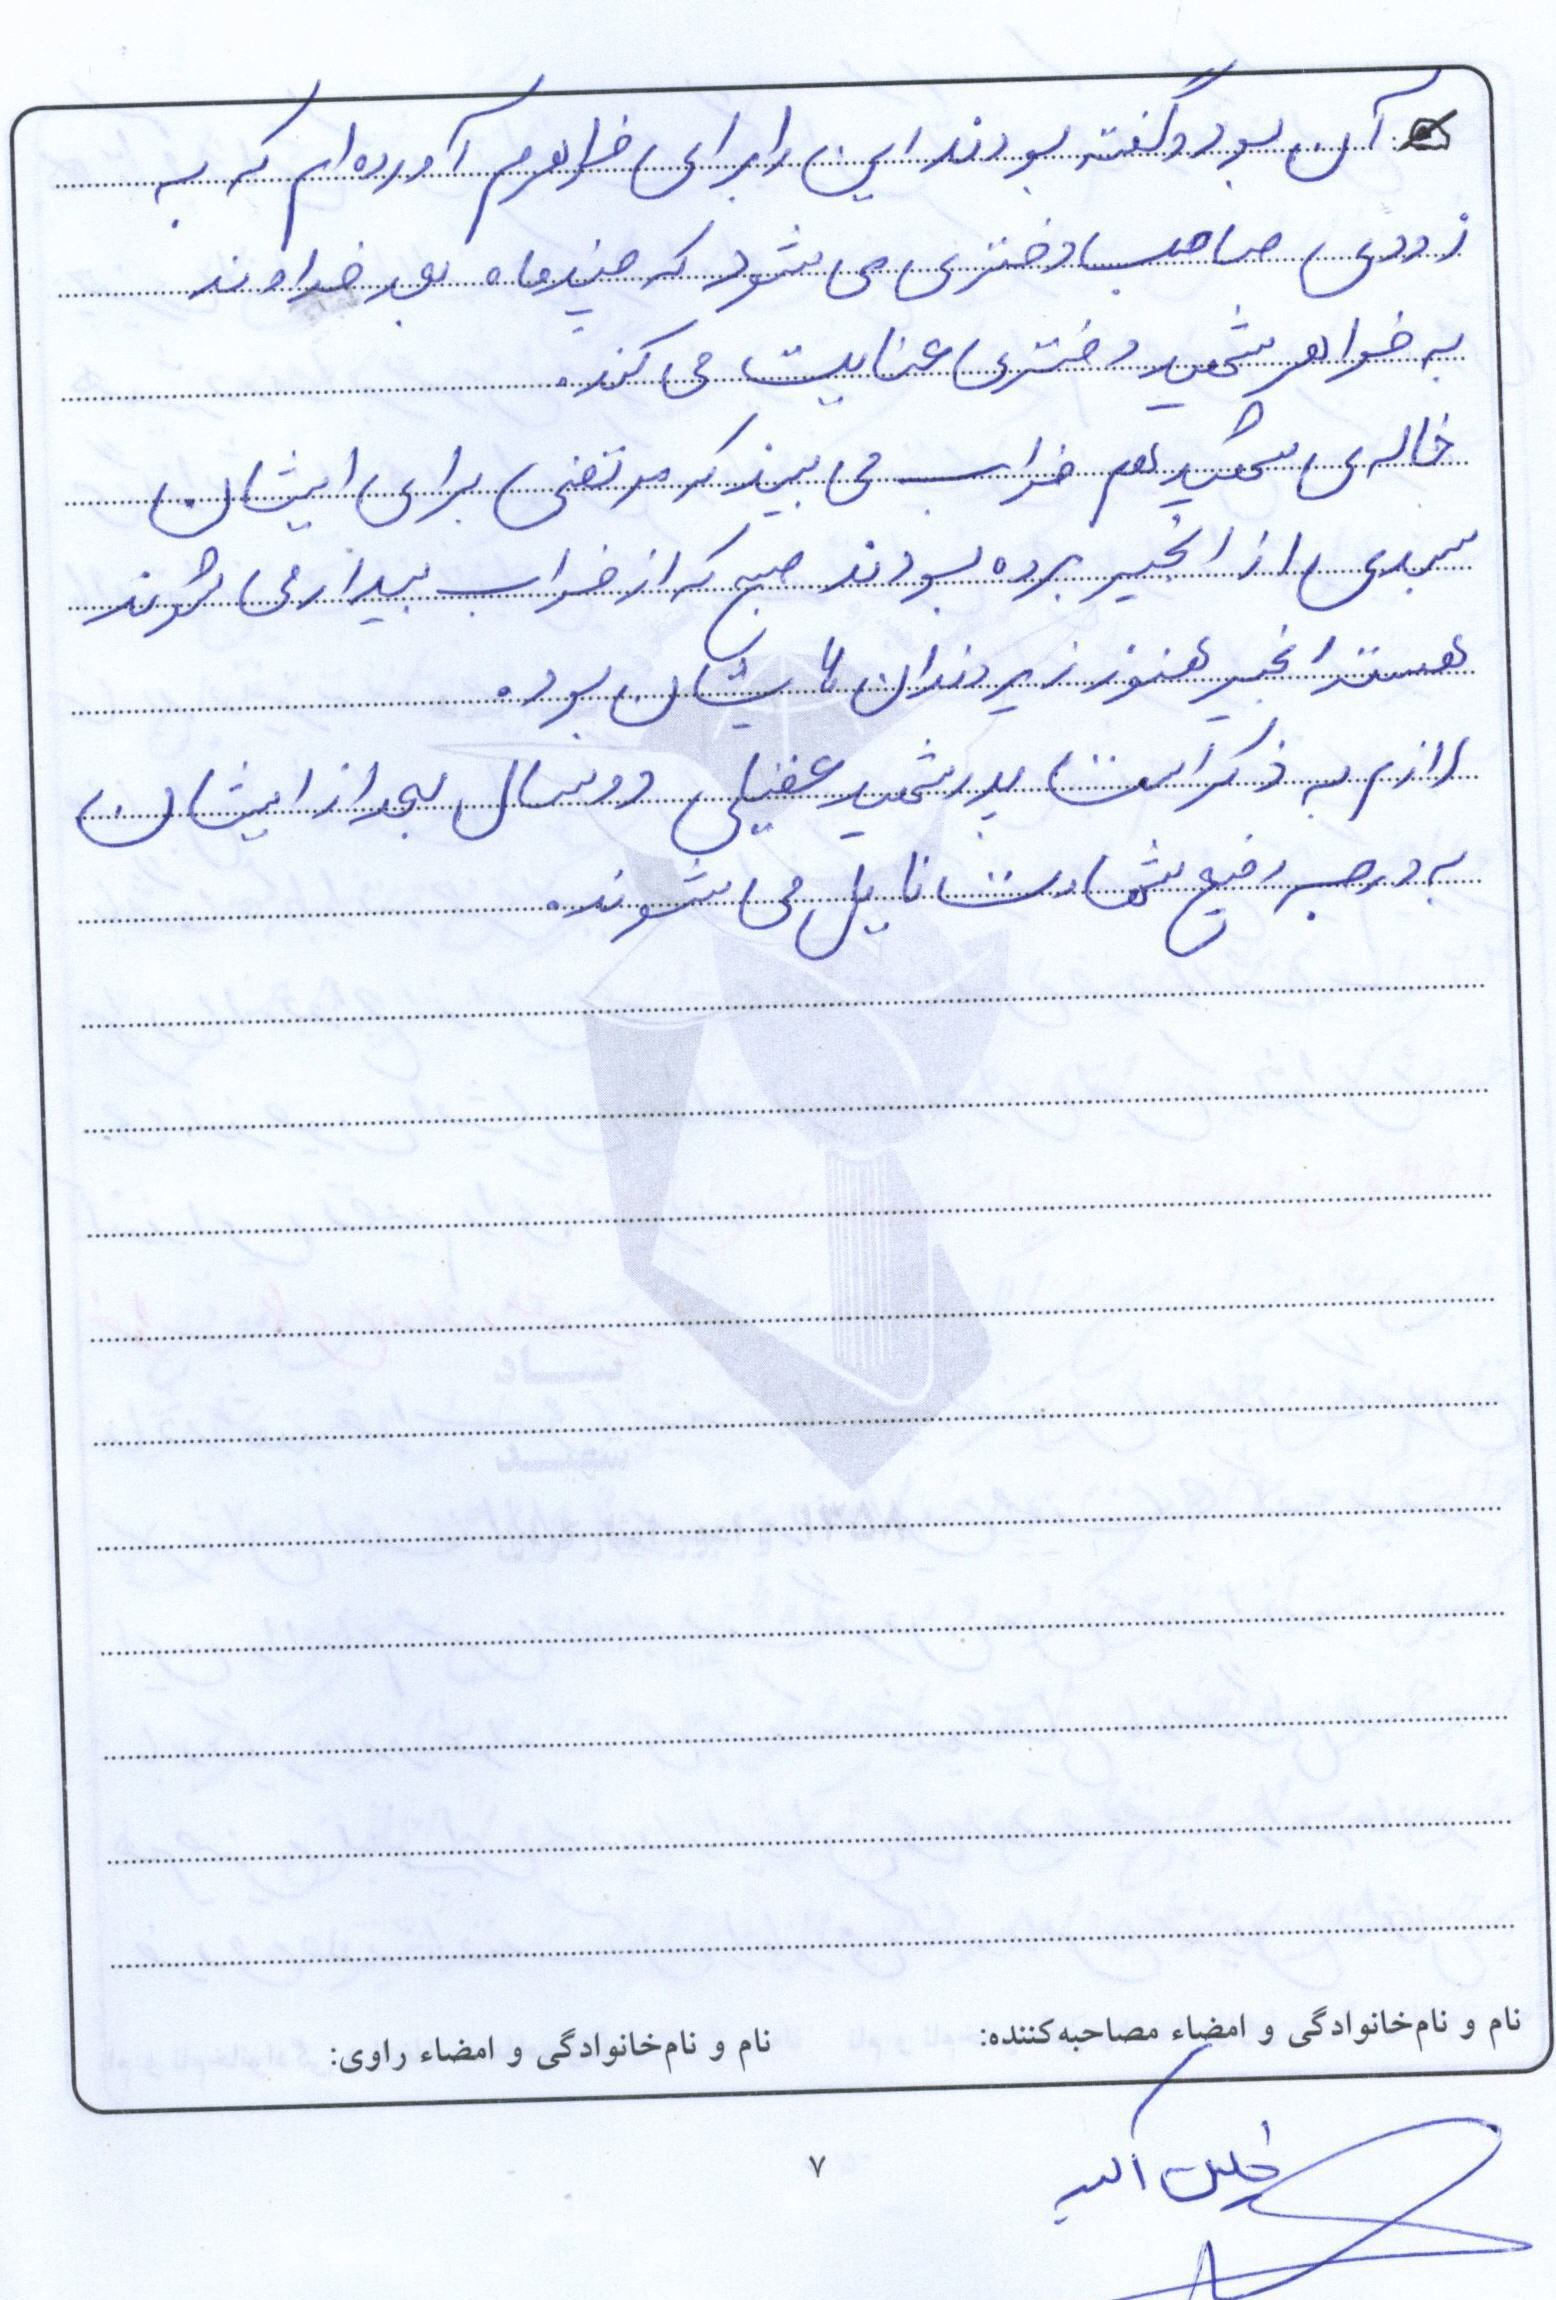 آن بود و گفته بودند این را برای خواهرم آورده‌ام که به
زودی صاحب دختری می شود که چند ماه بعد خداوند
به خواهر شهید دختری عنایت می کند.
خاله‌ی شهید هم خواب می بیند که مرتضی برای ایشان
سبدی از انجیر برده بودند صبح که از خواب بیدار می شوند
هسته انجیر هنوز زیر دندان هایشان بود.
لازم به ذکر است پدر شهید عقیلی دو سال بعد از ایشان
به درجه رفیع شهادت نایل می شوند.
نام و نام‌خانوادگی و امضاء مصاحبه‌کننده:
نام و نام‌خانوادگی و امضاء راوی:
۷